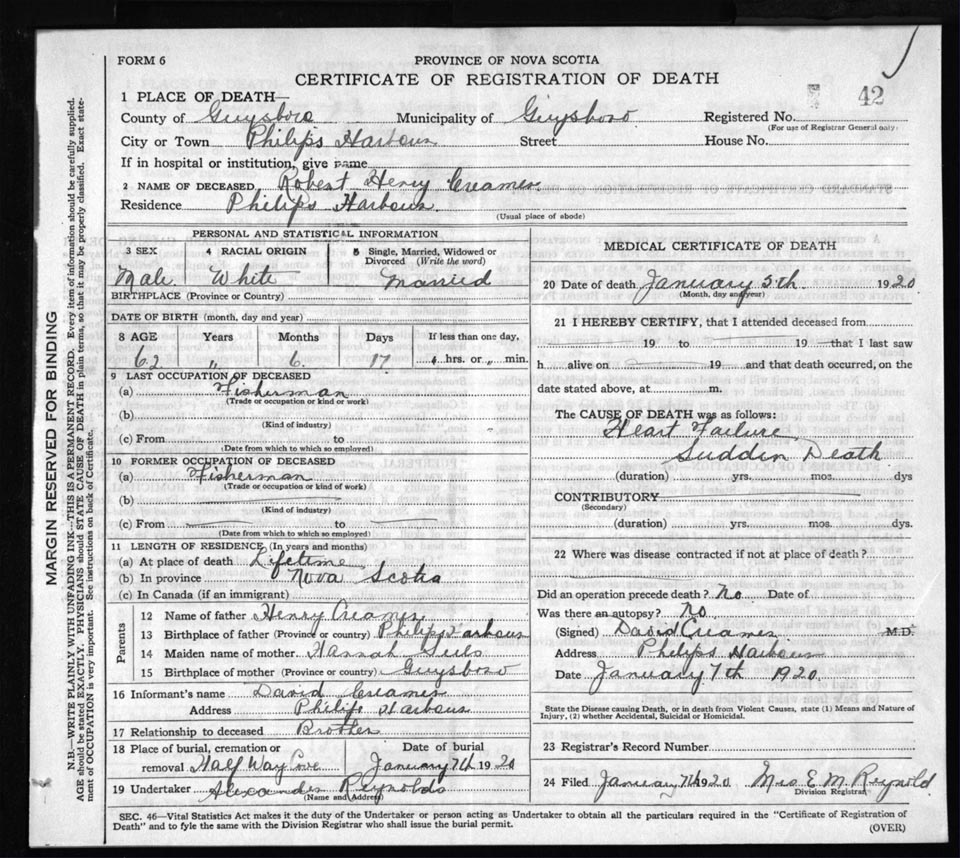 FORM 6
PROVINCE OF NOVA SCOTIA
CERTIFICATE OF REGISTRATION OF DEATH
42
1 PLACE OF DEATH—
County of Guysboro Municipality of Guysboro Registered No.
(For use of Registrar General only)
City or Town Philips Harbour Street House No.
If in hospital or institution, give name
2 NAME OF DECEASED Robert Henry Creamer
Residence Philips Harbour
(Usual place of abode)
PERSONAL AND STATISTICAL INFORMATION
3 SEX 4 RACIAL ORIGIN 5 Single, Married, Widowed or Divorced (Write the word)
Male White Married
BIRTHPLACE (Province or Country)
DATE OF BIRTH (month, day and year)
8 AGE Years Months Days If less than one day,
62 " 6 17 " hrs. or " min.
9 LAST OCCUPATION OF DECEASED
(a) Fisherman
(Trade or occupation or kind or work)
(b)
(Kind of industry)
(c) From to
(Date from which to which so employed)
10 FORMER OCCUPATION OF DECEASED
(a) Fisherman
(Trade or occupation or kind of work)
(b)
(Kind of industry)
(c) From to
(Date from which to which so employed)
11 LENGTH OF RESIDENCE (In years and months)
(a) At place of death Lifetime
(b) In province Nova Scotia
(c) In Canada (if an immigrant)
Parents
12 Name of father Henry Creamer
13 Birthplace of father (Province or country) Philips Harbour
14 Maiden name of mother Hannah
15 Birthplace of mother (Province or country) Guysboro
16 Informant's name David Creamer
Address Philip Harbour
17 Relationship to deceased Brother
18 Place of burial, cremation or removal Half Way Cove
Date of burial
January 7th 1920
19 Undertaker Alexander Reynolds
(Name and Address)
MEDICAL CERTIFICATE OF DEATH
20 Date of death January 5th 1920
(Month, day and year)
21 I HEREBY CERTIFY, that I attended deceased from
19 to 19 that I last saw
h alive on 19 and that death occurred, on the
date stated above, at m.
The CAUSE OF DEATH was as follows:
Heart Failure
Sudden Death
(duration) yrs. mos. dys
CONTRIBUTORY
(Secondary)
(duration) yrs. mos. dys.
22 Where was disease contracted if not at place of death?
Did an operation precede death? No Date of
Was there an autopsy? No
(Signed) David Creamer M.D.
Address Philips Harbour
Date January 7th 1920
State the Disease causing Death, or in death from Violent Causes, state (1) Means and Nature of
Injury, (2) whether Accidental, Suicidal or Homicidal.
23 Registrar's Record Number
24 Filed January 7th 1920 Mrs E. M. Reynold
Division Registrar
SEC. 46—Vital Statistics Act makes it the duty of the Undertaker or person acting as Undertaker to obtain all the particulars required in the "Certificate of Registration of
Death" and to fyle the same with the Division Registrar who shall issue the burial permit.
(OVER)
MARGIN RESERVED FOR BINDING
N.B.—WRITE PLAINLY WITH UNFADING INK—THIS IS A PERMANENT RECORD. Every item of information should be carefully supplied.
AGE should be stated EXACTLY. PHYSICIANS should STATE CAUSE OF DEATH in plain terms, so that it may be properly classified. Exact state-
ment of OCCUPATION is very important. See instructions on back of Certificate.